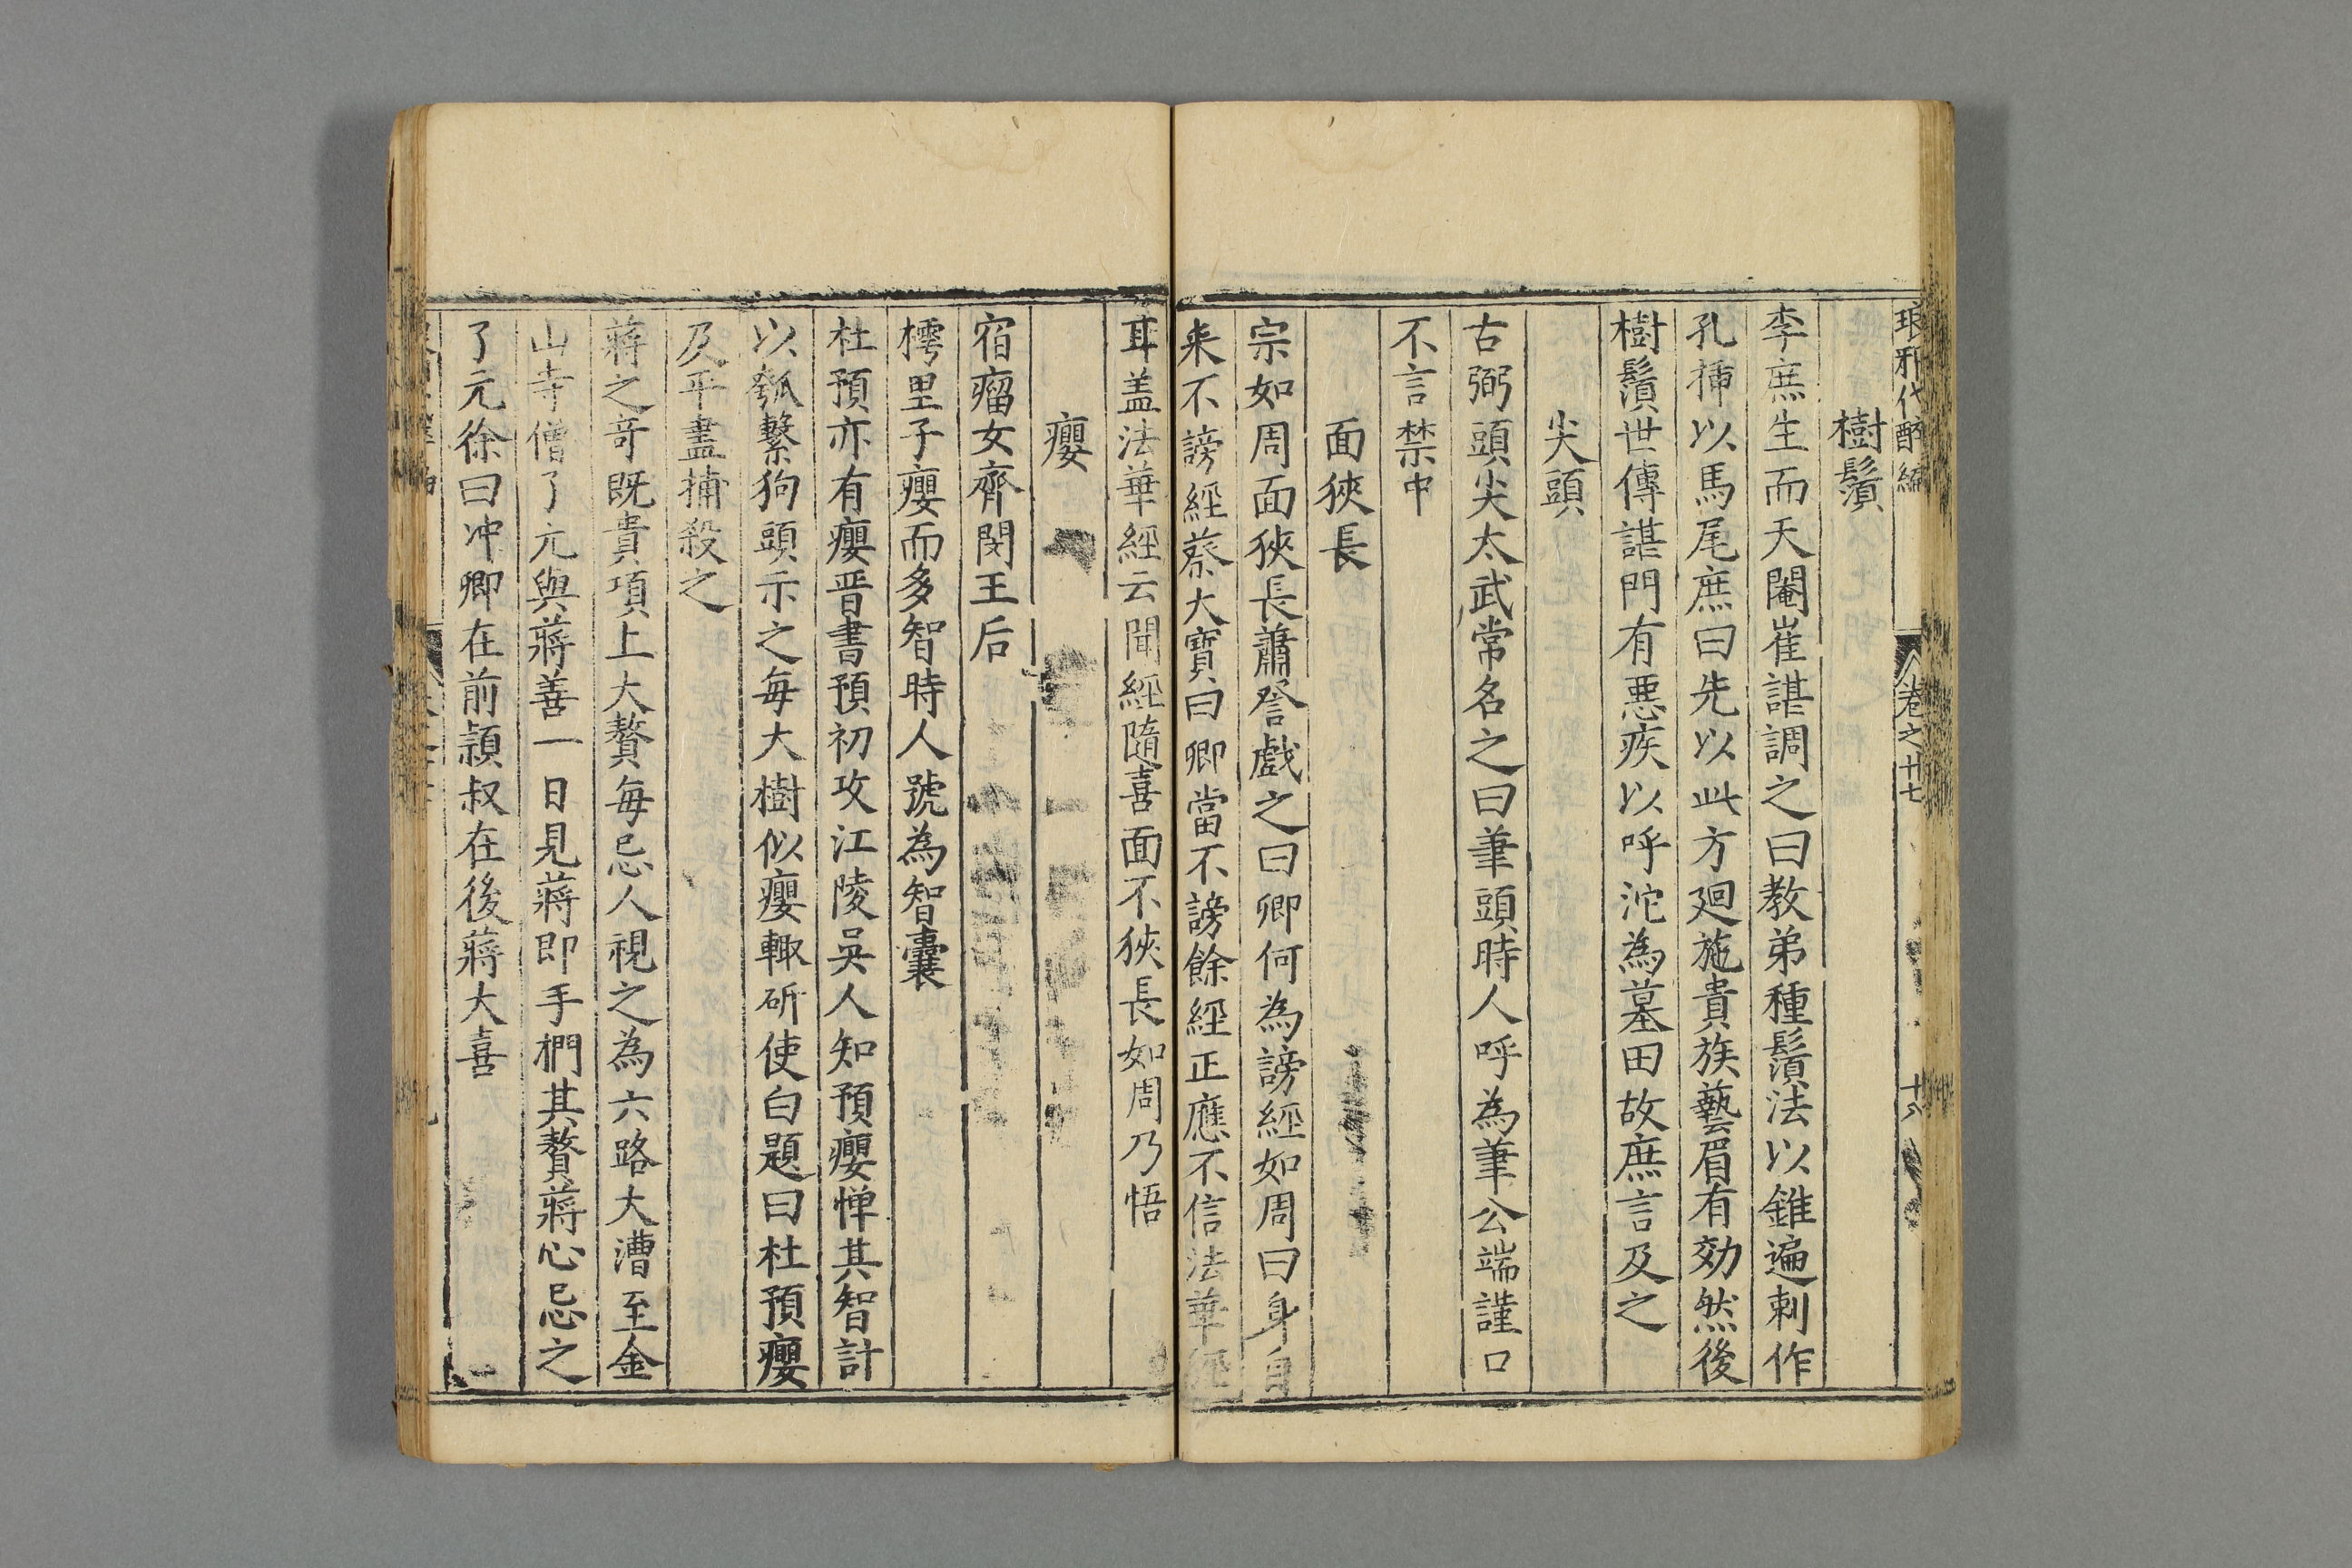 琅邪代醉編 卷之廿七 十八
樹鬚
李庶生而天閹崔諶調之曰教弟種鬚法以錐遍刺作
孔揷以馬尾庶曰先以此方廻施貴族藝眉有効然後
樹鬚世傳諶門有悪疾以呼沱為墓田故庶言及之
尖頭
古弼頭尖太武常名之曰筆頭時人呼為筆公端謹口
不言禁中
面狹長
宗如周面狹長蕭詧戲之曰卿何為謗經如周曰身自
来不謗經蔡大寳曰卿當不謗餘經正應不信法華經
耳盖法華經云聞經隨喜面不狹長如周乃悟
癭
宿瘤女齊閔王后
樗里子癭而多智時人號為智囊
杜預亦有癭晋書預初攻江陵吳人知預癭憚其智計
以瓠繫狗頭示之毎大樹似癭輙斫使白題曰杜預癭
及平盡捕殺之
蔣之竒既貴項上大贅毎忌人視之為六路大漕至金
山寺僧了元與蔣善一日見蔣即手捫其贅蔣心忌之
了元徐曰冲卿在前頴叔在後蔣大喜